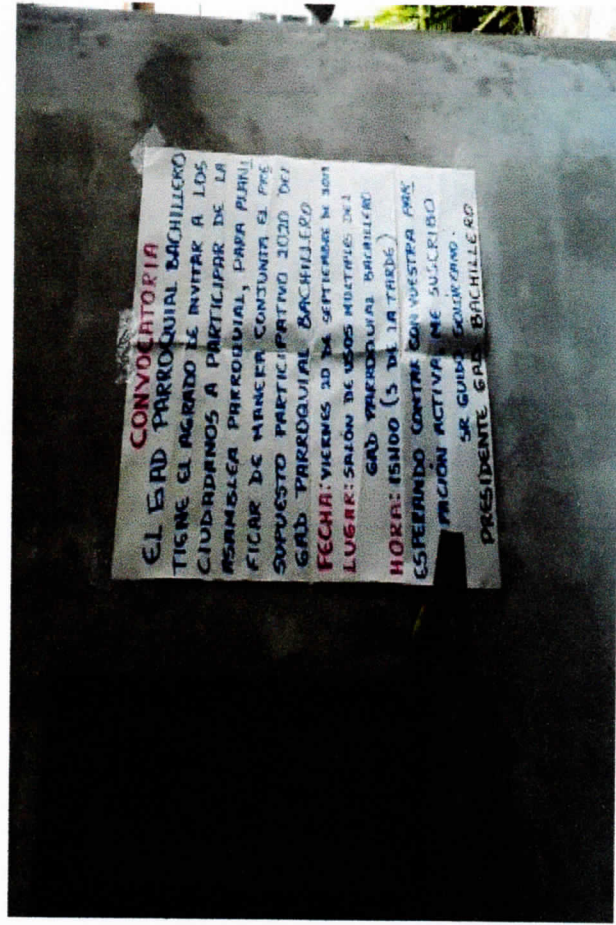 CONVOCATORIA
EL GAD PARROQUIAL BACHILLERO
TIENE EL AGRADO DE INVITAR A LOS
CIUDADANOS A PARTICIPAR DE LA
ASAMBLEA PARROQUIAL, PARA PLANI
FICAR DE MANERA CONJUNTA EL PRE
SUPUESTO PARTICIPATIVO 2020 DEL
GAD PARROQUIAL BACHILLERO
FECHA: VIERNES 20 DE SEPTIEMBRE DE 2019
LUGAR: SALÓN DE USOS MULTIPLES DEL
GAD PARROQUIAL BACHILLERO
HORA: 15H00 (3 DE LA TARDE)
ESPERANDO CONTAR CON VUESTRA PAR
ACTIVA, ME SUSCRIBO
SR GUIDO SOLORZANO.
PRESIDENTE GAD BACHILLERO